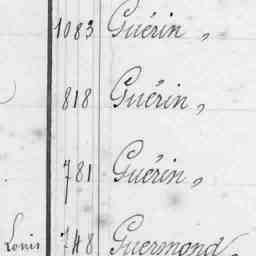 1083 Guérin,
818 Guérin,
781 Guérin,
Louis 748 Guermond,